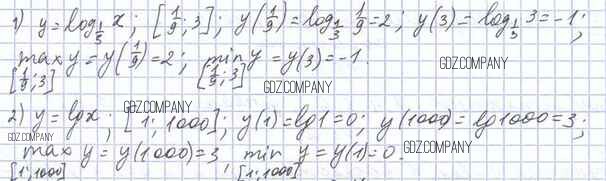 1) y = log_{1/3} x; [1/9; 3]; y(1/9) = log_{1/3} 1/9 = 2; y(3) = log_{1/3} 3 = -1;
max y = y(1/9) = 2; min y = y(3) = -1.
[1/9; 3] [1/9; 3]
GDZ.COMPANY
GDZ.COMPANY
GDZ.COMPANY
2) y = lg x; [1; 1000]; y(1) = lg 1 = 0; y(1000) = lg 1000 = 3;
GDZ.COMPANY
GDZ.COMPANY
max y = y(1000) = 3, min y = y(1) = 0.
[1; 1000] [1; 1000]